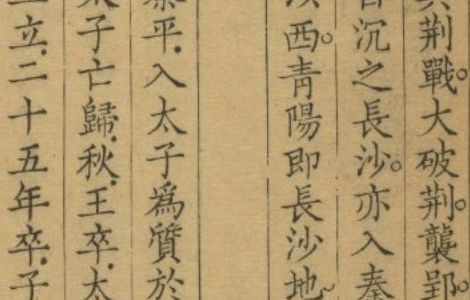 荆戰。大破荆。襲郢。
沉之長沙。亦入秦
西。青陽即長沙地
平.入太子爲質於
子亡歸.秋.王卒.太
立.二十五年卒.子